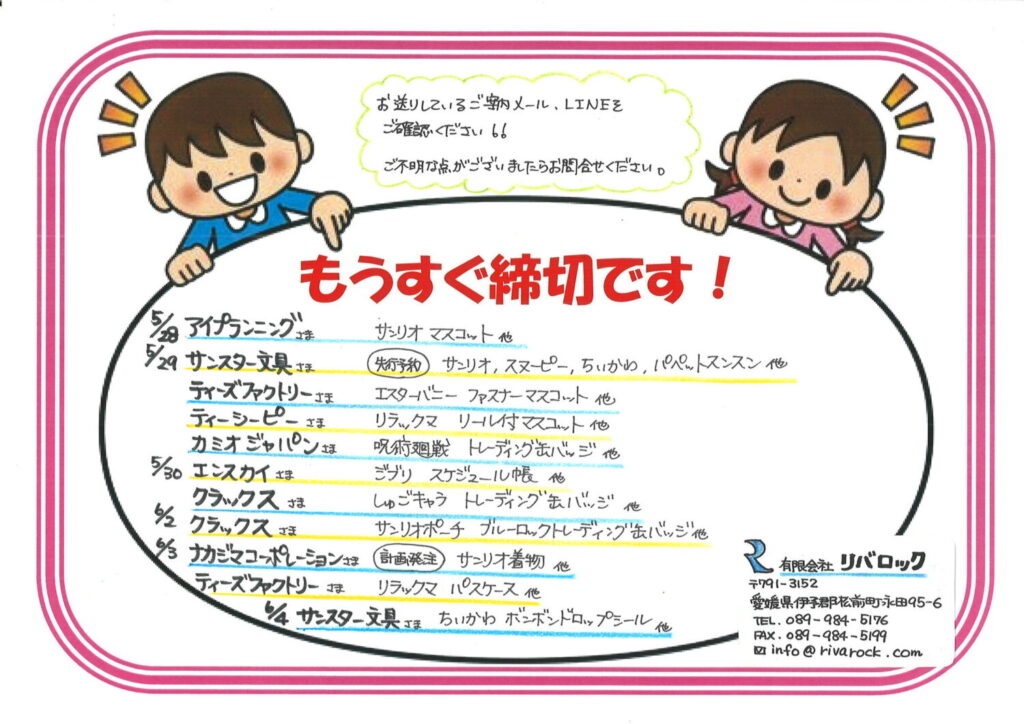 お送りしているご案内メール、LINEを
ご確認ください
ご不明な点がございましたらお問合せください。
もうすぐ締切です！
5/28 アイプランニングさま サンリオ マスコット 他
5/29 サンスター文具さま 先行予約 サンリオ, スヌーピー, ちいかわ, パペットスンスン 他
ティーズファクトリーさま エスターバニー ファスナーマスコット 他
ティーシーピーさま リラックマ リール付マスコット 他
カミオジャパンさま 呪術廻戦 トレーディング缶バッジ 他
5/30 エンスカイさま ジブリ スケジュール帳 他
クラックスさま しゅごキャラ トレーディング缶バッジ 他
6/2 クラックスさま サンリオポーチ ブルーロックトレーディング缶バッジ他
6/3 ナカジマコーポレーションさま 計画発注 サンリオ着物 他
ティーズファクトリーさま リラックマ パスケース 他
6/4 サンスター文具さま ちいかわ ボンボンドロップシール 他
有限会社 リバロック
〒791-3152
愛媛県伊予郡松前町永田95-6
TEL. 089-984-5176
FAX. 089-984-5199
✉ info@rivarock.com